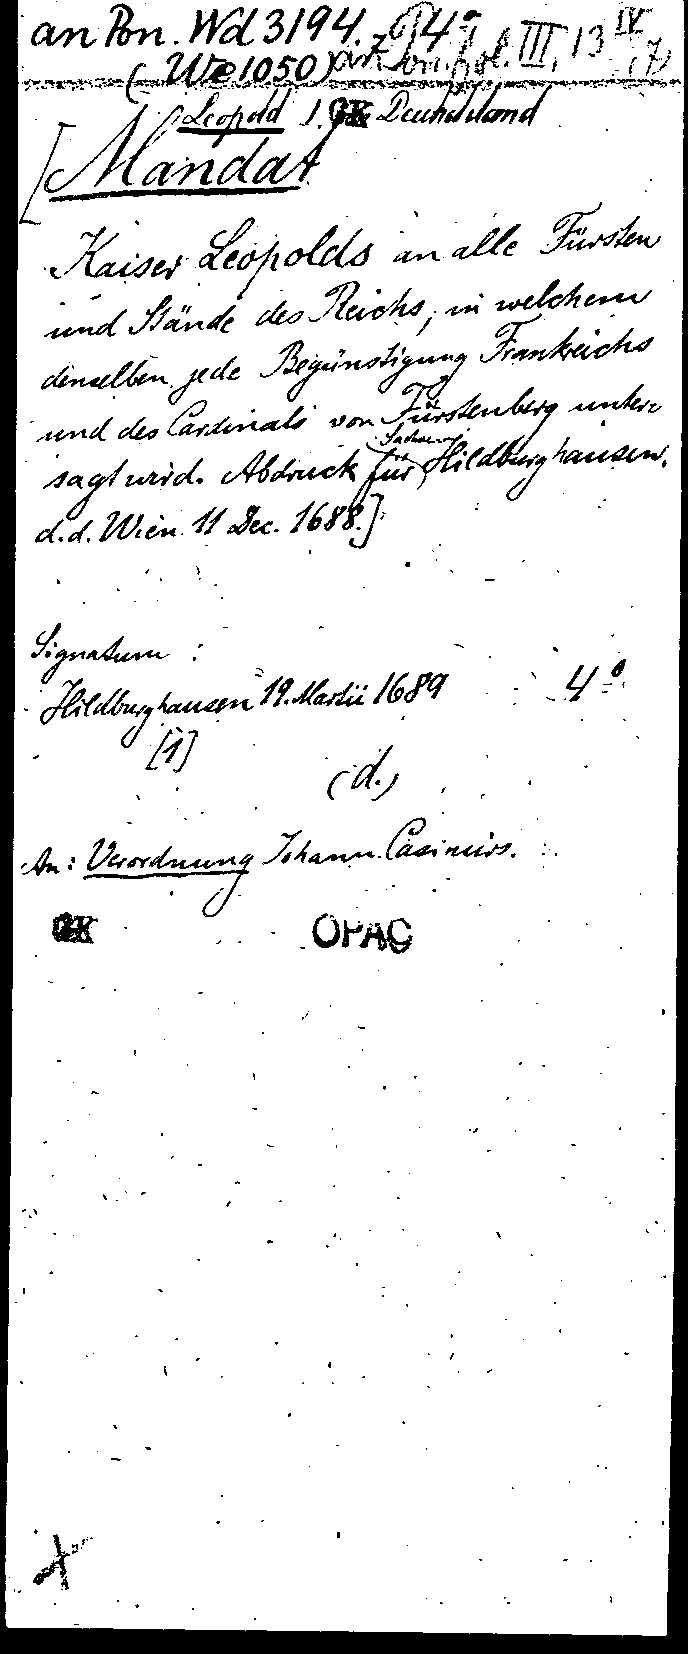 an Pon. Wd 3194. P 4°
(We 1050) an Pon. Vol. III, 13 IV (7)
Leopold I. GK Deutschland
[Mandat
Kaiser Leopolds an alle Fürsten
und Stände des Reichs, in welchem
denselben jede Begünstigung Frankreichs
und des Cardinals von Fürstenberg unter=
sagt wird. Abdruck für Sachsen Hildburghausen.
d.d. Wien 11 Dec. 1688.]
Signatum :
Hildburghausen 19. Martii 1689 4°
[1]
(d.)
An: Verordnung Johann Casimirs.
GK OPAC